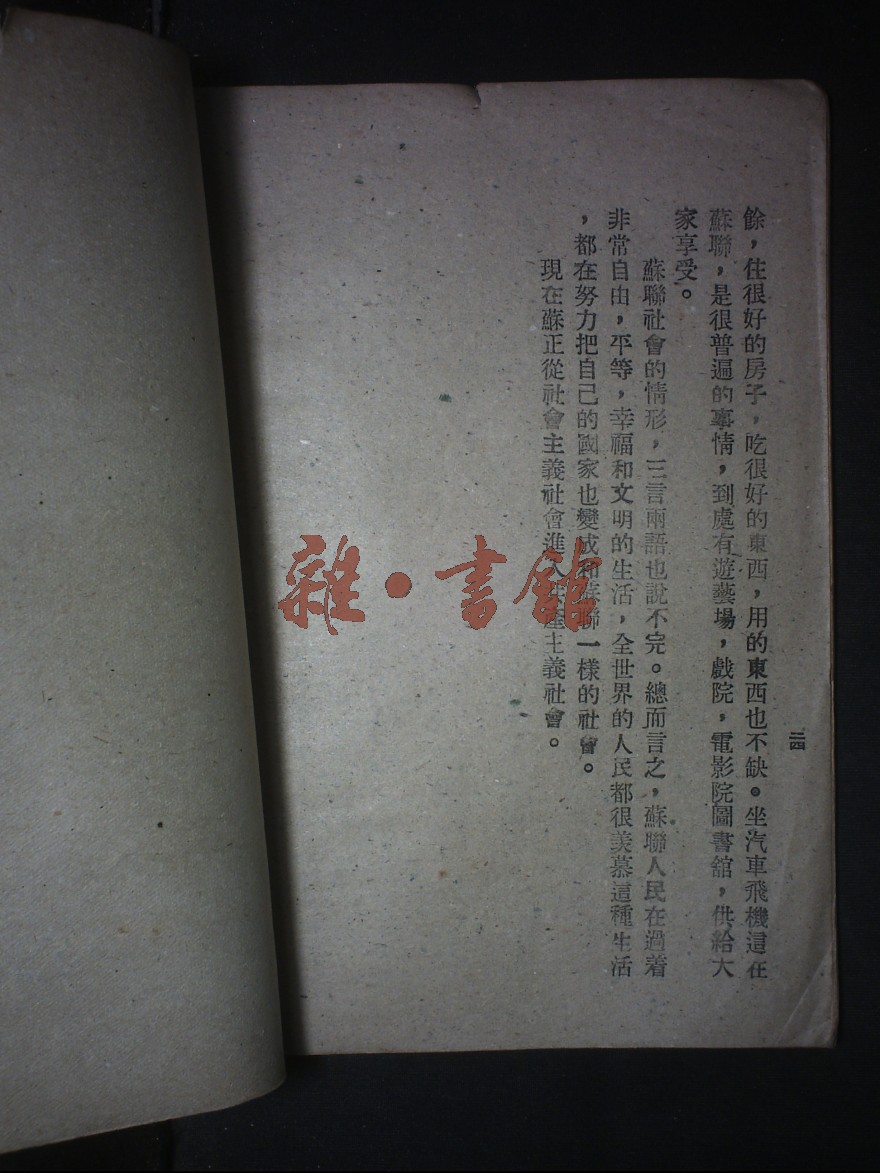 餘，住很好的房子，吃很好的東西，用的東西也不缺。坐汽車飛機這在
蘇聯，是很普遍的事情，到處有遊藝場，戲院，電影院圖書舘，供給大
家享受。
蘇聯社會的情形，三言兩語也說不完。總而言之，蘇聯人民在過着
非常自由，平等，幸福和文明的生活，全世界的人民都很羡慕這種生活
，都在努力把自己的國家也變成和蘇聯一樣的社會。
現在蘇正從社會主義社會進入共產主義社會。
二四
雜·書館